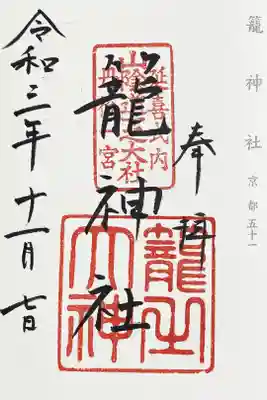 籠神社 京都五十一
奉拝
延喜式内
大社
籠神社
籠之
大神
令和三年十一月七日